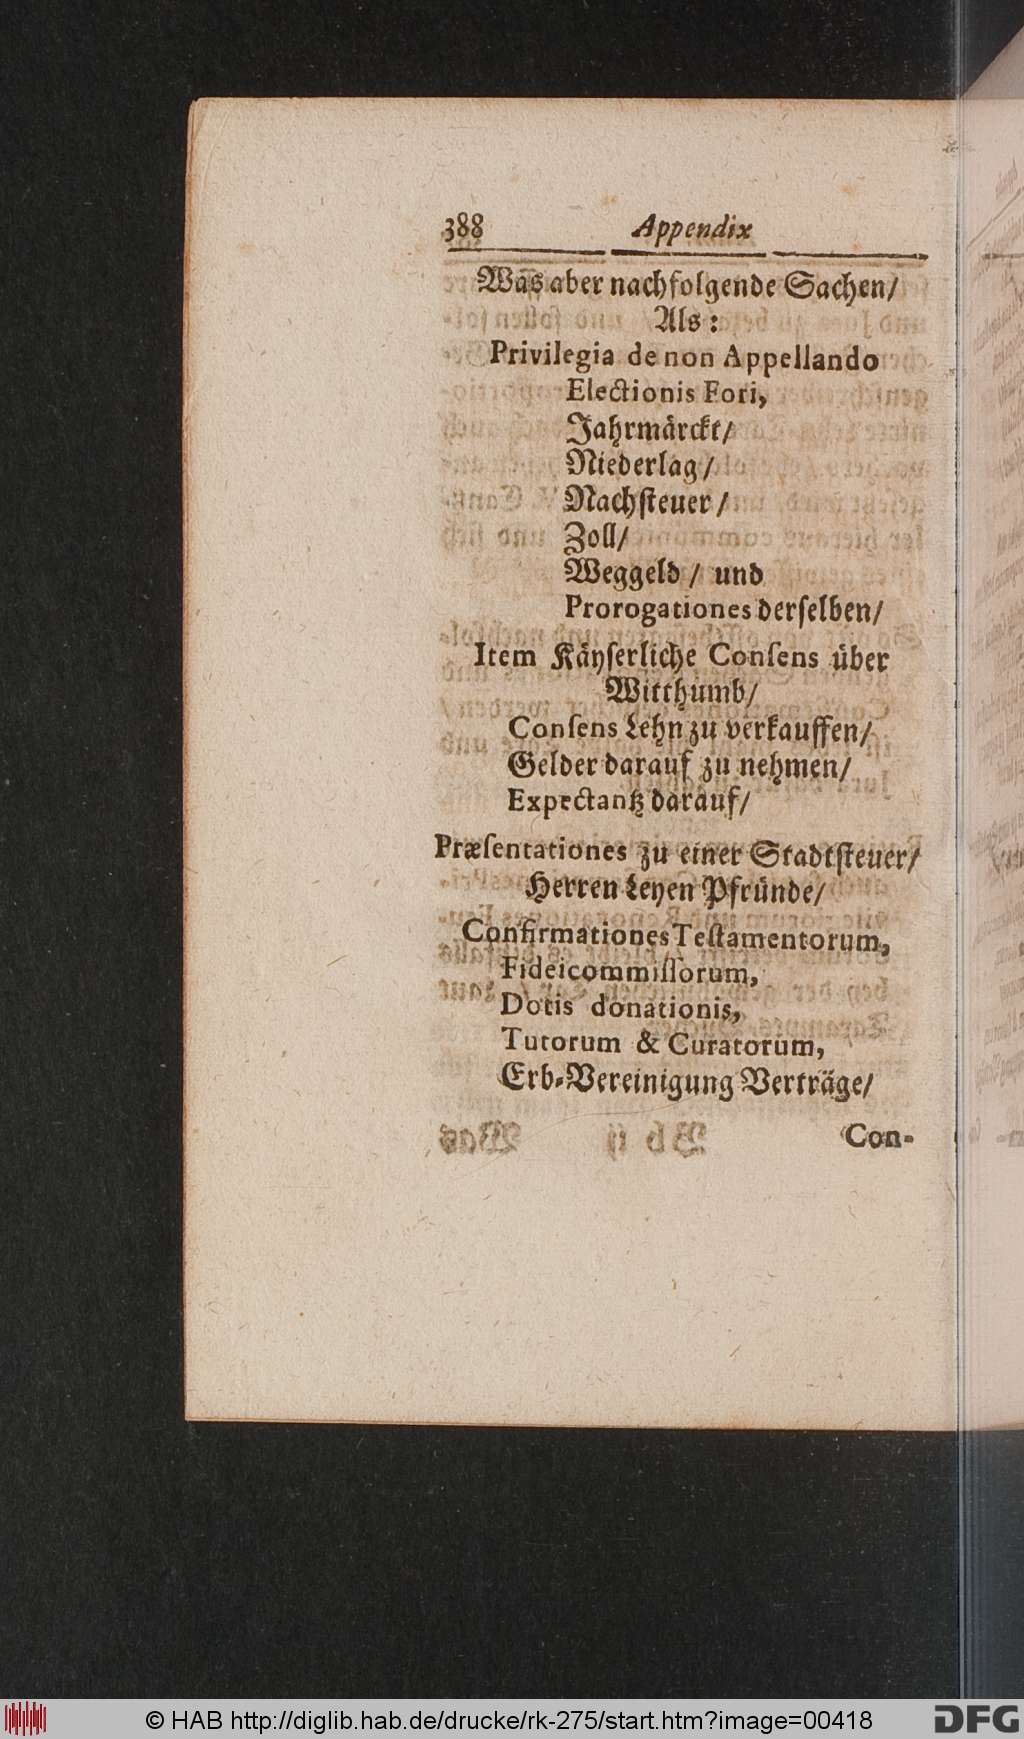 388 Appendix
Was aber nachfolgende Sachen/
Als:
Privilegia de non Appellando
Electionis Fori,
Jahrmärckt/
Niederlag/
Nachsteuer/
Zoll/
Weggeld/ und
Prorogationes derselben/
Item Käyserliche Consens über
Witthumb/
Consens Lehn zu verkauffen/
Gelder darauf zu nehmen/
Expectantz darauf/
Præsentationes zu einer Stadtsteuer/
Herren Leyen Pfründe/
Confirmationes Testamentorum,
Fideicommissorum,
Dotis donationis,
Tutorum & Curatorum,
Erb-Vereinigung Verträge/
Con-
© HAB http://diglib.hab.de/drucke/rk-275/start.htm?image=00418
DFG